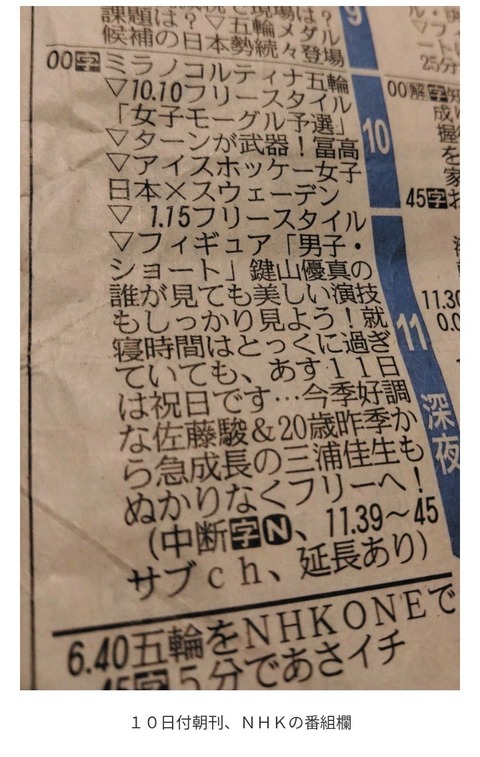 課題は？▽五輪メダル
候補の日本勢続々登場
9
00字ミラノコルティナ五輪
▽10.10フリースタイル
「女子モーグル予選」
▽ターンが武器！冨高
▽アイスホッケー女子
日本×スウェーデン
▽ 1.15フリースタイル
▽フィギュア「男子・
ショート」鍵山優真の
誰が見ても美しい演技
もしっかり見よう！就
寝時間はとっくに過ぎ
ていても、あす１１日
は祝日です…今季好調
な佐藤駿＆20歳昨季か
ら急成長の三浦佳生も
ぬかりなくフリーへ！
（中断字N、11.39〜45
サブｃｈ、延長あり）
6.40五輪をＮＨＫＯＮＥで
45字５分であさイチ
10
11
深夜
25分
00解字知
成
握
を
家
45字お
11.30
0.0
１０日付朝刊、ＮＨＫの番組欄